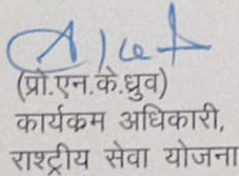 (प्रो.एन.के.ध्रुव)
कार्यकम अधिकारी,
राश्ट्रीय सेवा योजना